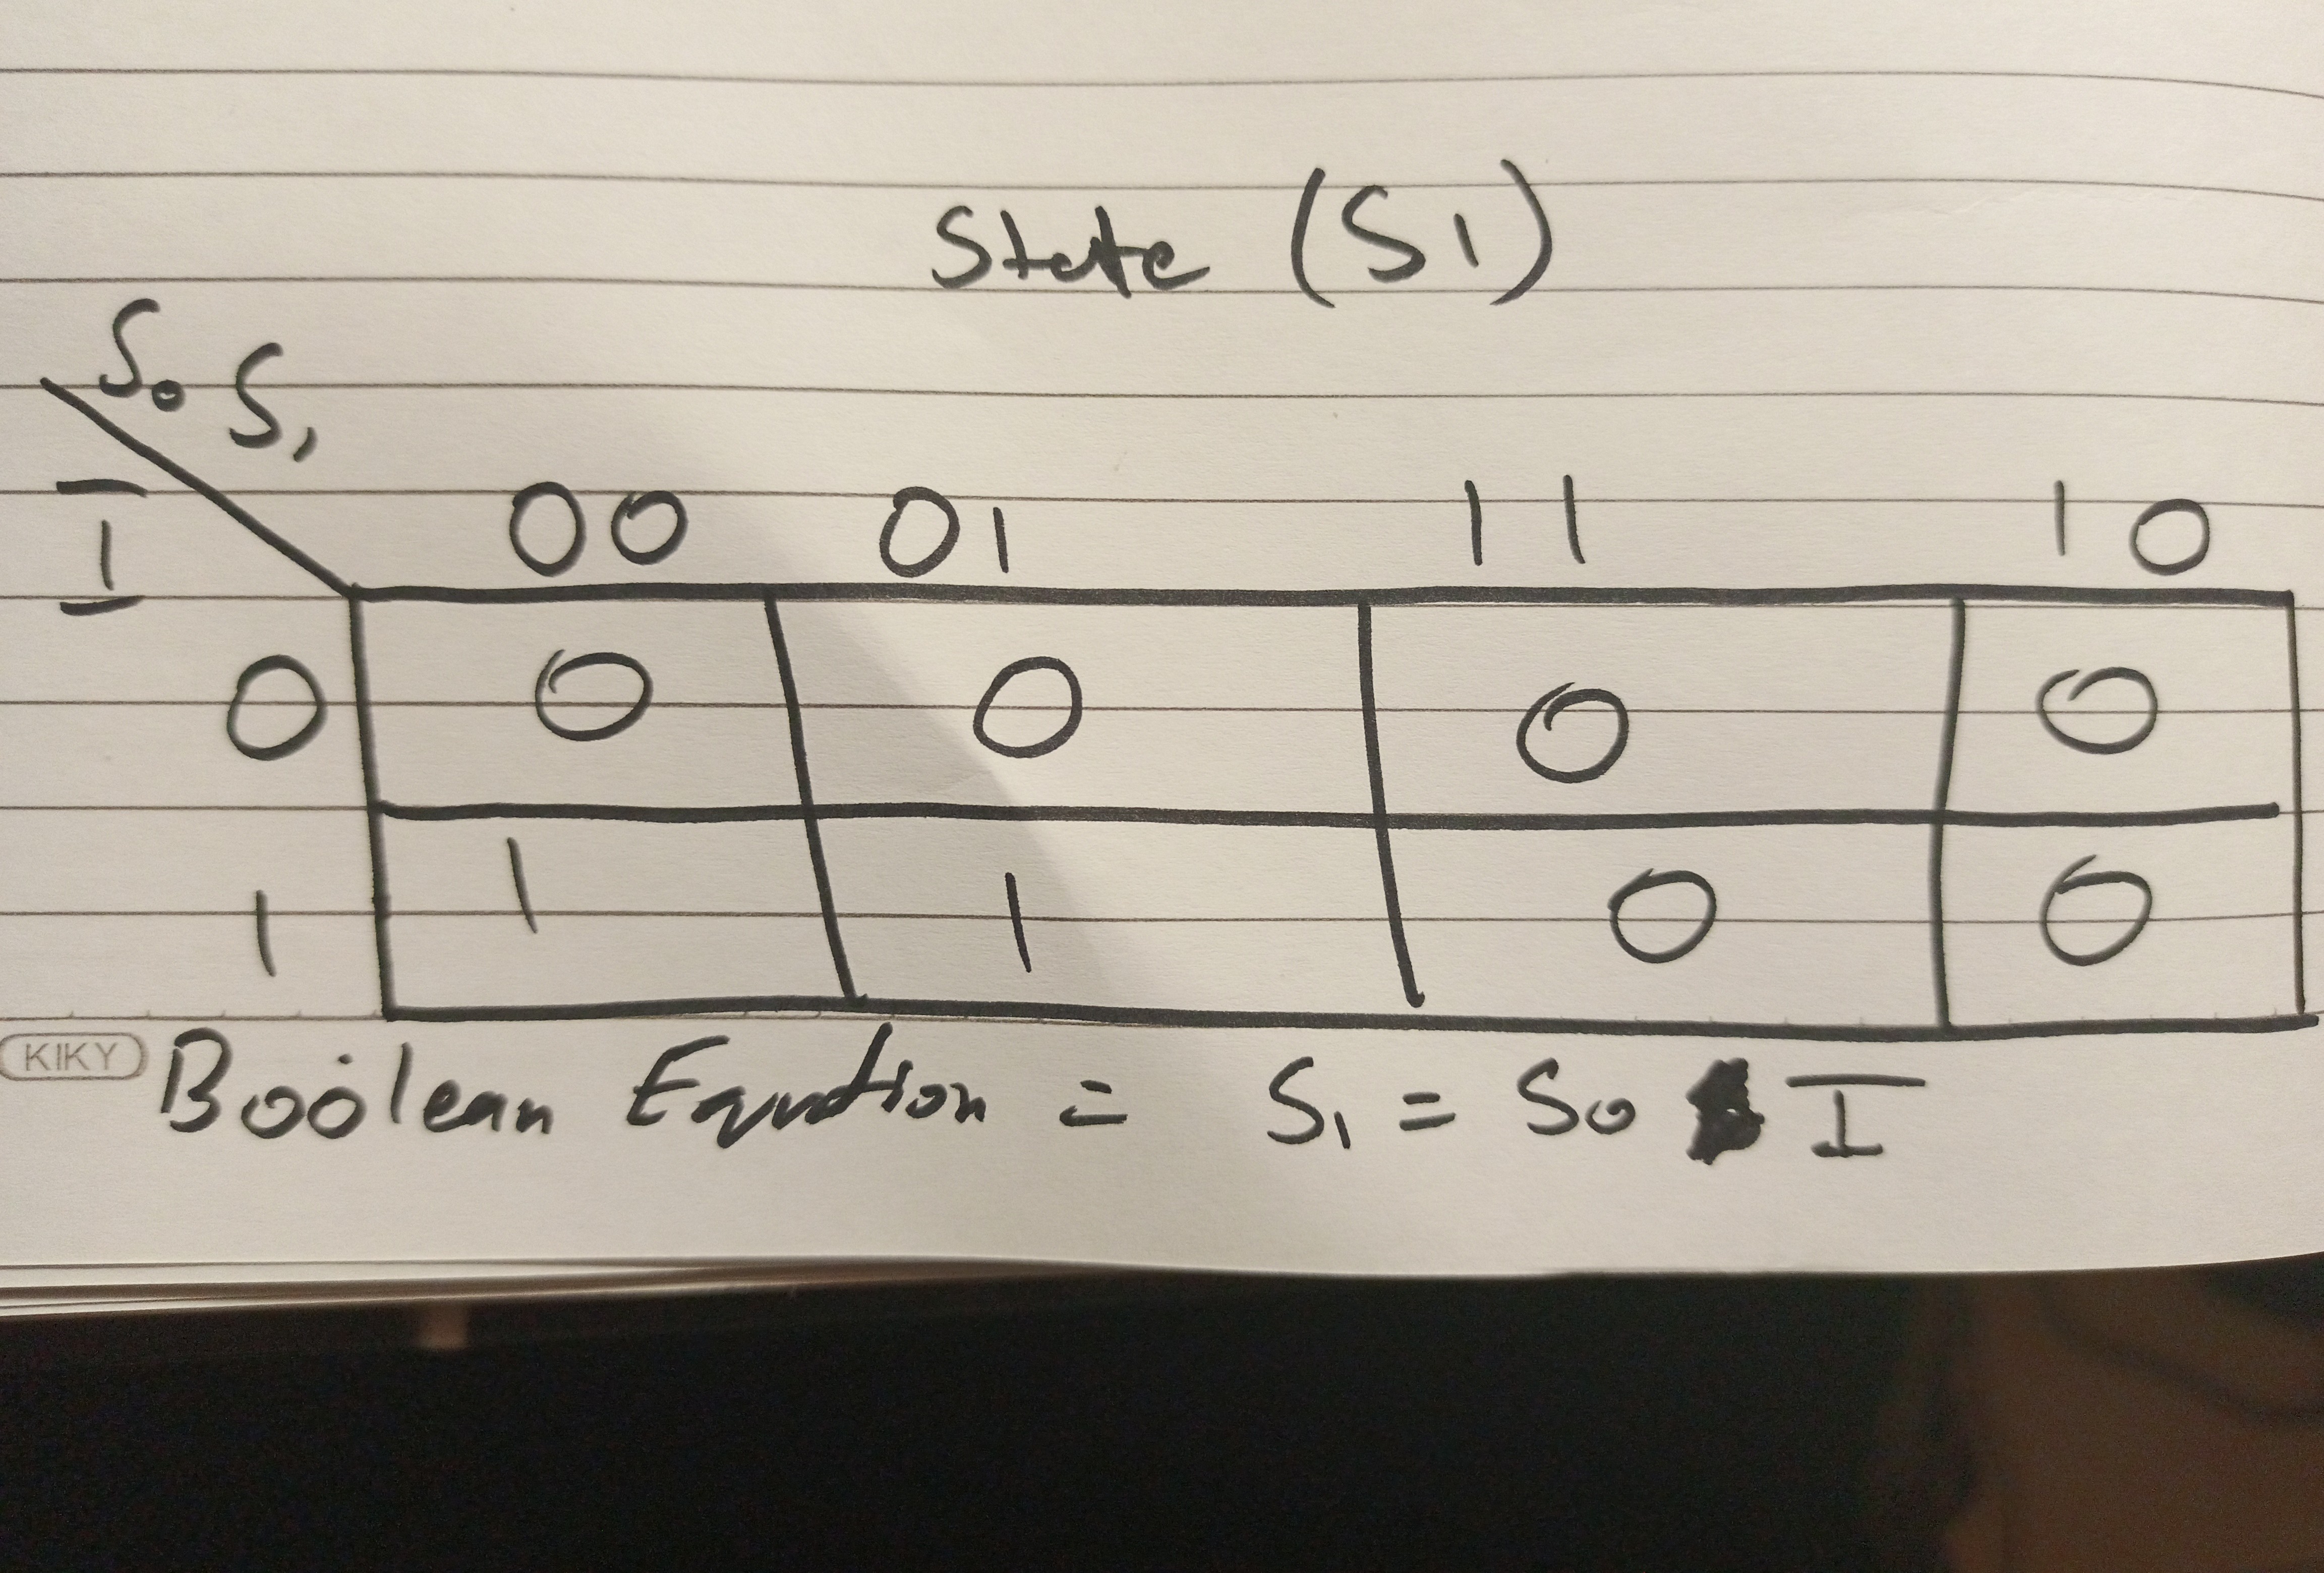 State (S1)
S0 S1
I
00 01 11 10
0 0 0 0 0
1 1 1 0 0
KIKY
Boolean Equation = S1 = S0 I̅